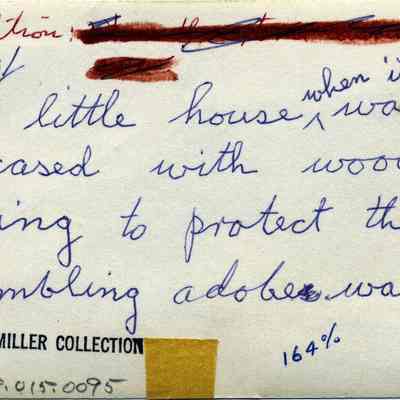 ition:
little house when i wa
cased with wood
ing to protect th
mbling adobe wa
MILLER COLLECTION
164%
.015.0095